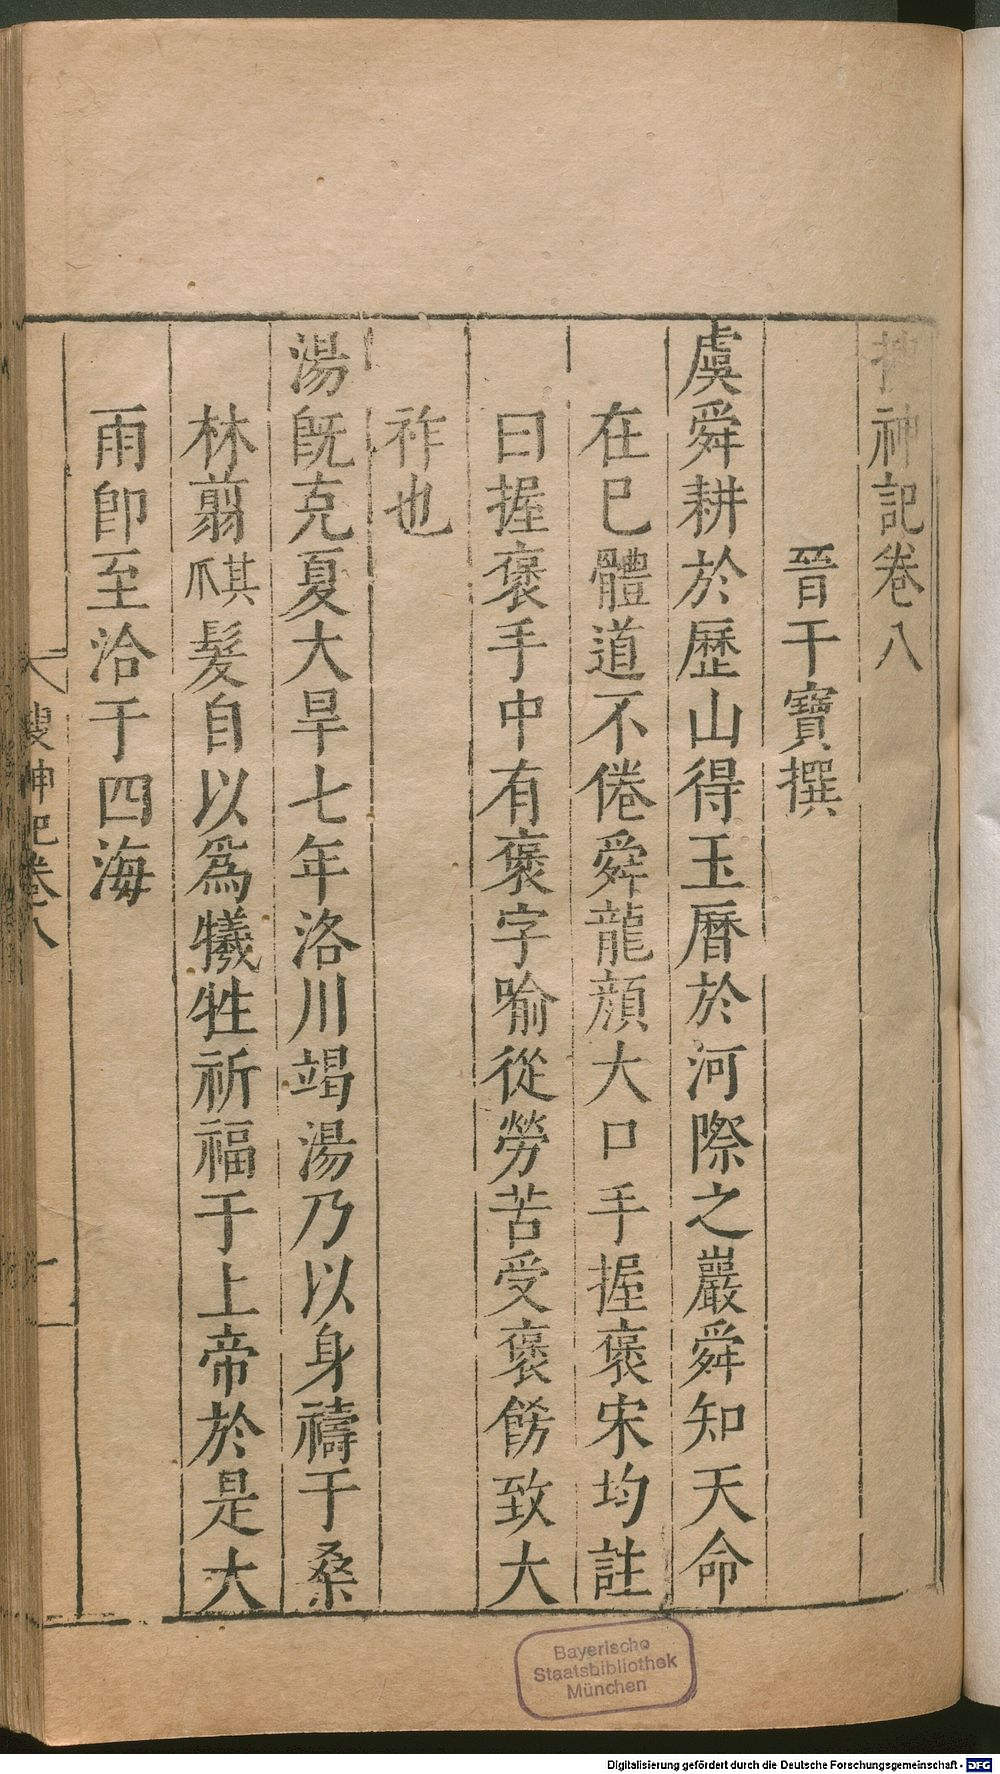 搜神記卷八
晉干寶撰
虞舜耕於歷山得玉曆於河際之巖舜知天命
在已體道不倦舜龍顔大口手握褒宋均註
曰握褒手中有褒字喻從勞苦受褒餝致大
祚也
湯旣克夏大旱七年洛川竭湯乃以身禱于桑
林翦爪髮自以爲犧牲祈福于上帝於是大
雨卽至洽于四海
搜神記卷八
一
Bayerische
Staatsbibliothek
München
Digitalisierung gefördert durch die Deutsche Forschungsgemeinschaft - DFG